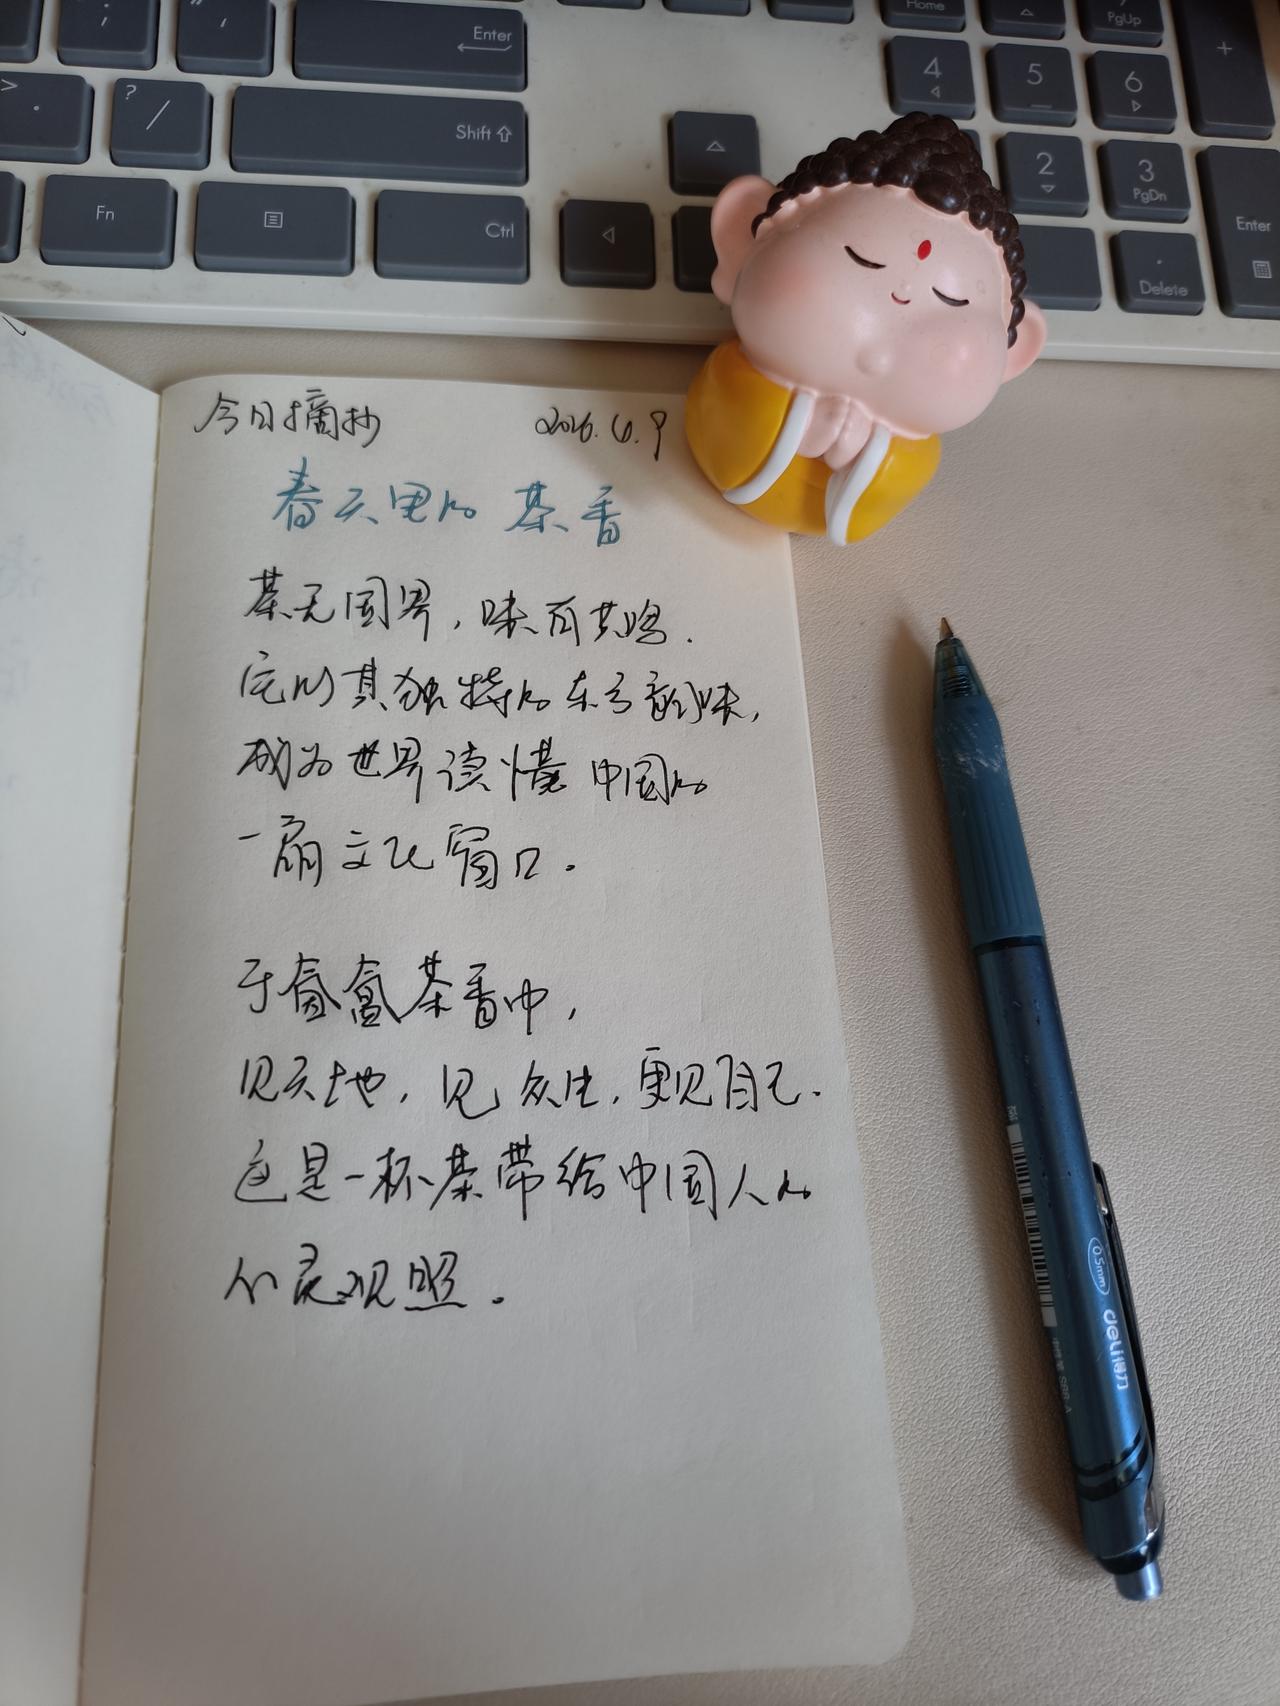 Home
PgUp
Enter
4
5
6
+
>
.
?
/
Shift
2
3
PgDn
Fn
Ctrl
Enter
.
Delete
今日摘抄 2026.6.9
春天里的茶香
茶无国界，味有共鸣.
它以其独特的东方韵味，
成为世界读懂中国的
一扇文化窗口.
于氤氲茶香中，
见天地，见众生，更见自己.
这是一杯茶带给中国人的
心灵观照.
0.5mm deli得力
S88-A